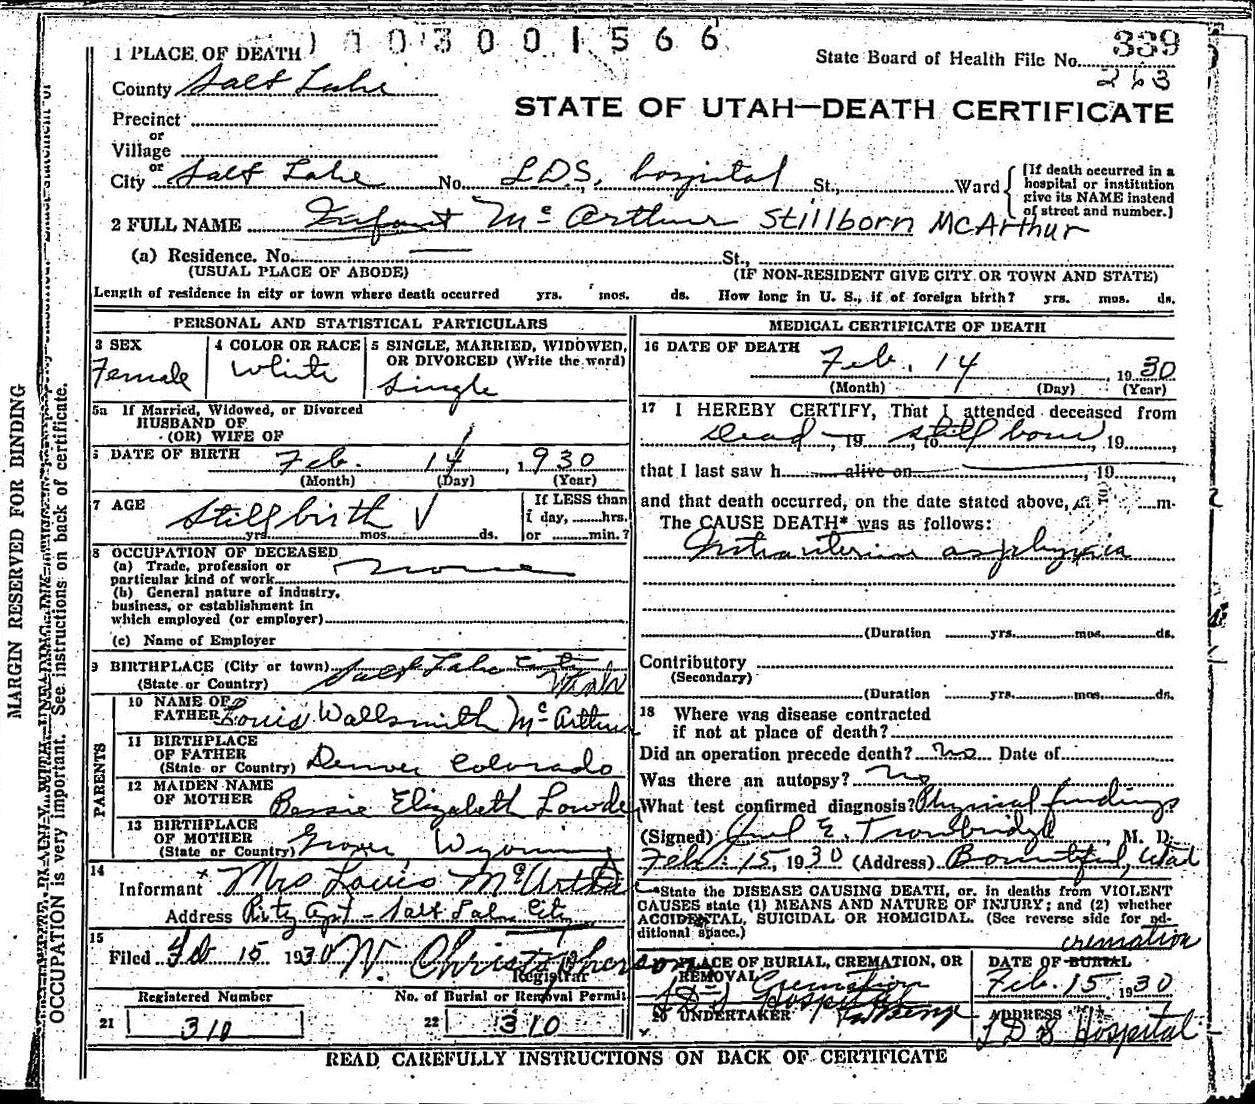 1 0 0 3 0 0 1 5 6 6
1 PLACE OF DEATH
State Board of Health File No. 339
263
County Salt Lake
STATE OF UTAH—DEATH CERTIFICATE
Precinct
or
Village
or
City Salt Lake No. L.D.S. hospital St., Ward
[If death occurred in a hospital or institution give its NAME instead of street and number.]
2 FULL NAME Infant McArthur Stillborn McArthur
(a) Residence. No. St.,
(USUAL PLACE OF ABODE) (IF NON-RESIDENT GIVE CITY OR TOWN AND STATE)
Length of residence in city or town where death occurred yrs. mos. ds. How long in U. S., if of foreign birth? yrs. mos. ds.
PERSONAL AND STATISTICAL PARTICULARS
3 SEX
Female
4 COLOR OR RACE
White
5 SINGLE, MARRIED, WIDOWED,
OR DIVORCED (Write the word)
Single
5a If Married, Widowed, or Divorced
HUSBAND OF
(OR) WIFE OF
6 DATE OF BIRTH Feb. 14, 1930
(Month) (Day) (Year)
7 AGE Stillbirth
yrs. mos. ds.
If LESS than
1 day, hrs.
or min.?
8 OCCUPATION OF DECEASED
(a) Trade, profession or
particular kind of work none
(b) General nature of industry,
business, or establishment in
which employed (or employer)
(c) Name of Employer
9 BIRTHPLACE (City or town) Salt Lake City
(State or Country) Utah
PARENTS
10 NAME OF
FATHER Louis Wallsmith McArthur
11 BIRTHPLACE
OF FATHER
(State or Country) Denver Colorado
12 MAIDEN NAME
OF MOTHER Bessie Elizabeth Lowde
13 BIRTHPLACE
OF MOTHER
(State or Country) Grover, Wyoming
14
Informant Mrs Louis McArthur
Address Ritz Apt - Salt Lake City
15
Filed Feb 15 1930 W. Christopherson
Registrar
Registered Number
21 310
No. of Burial or Removal Permit
22 310
MEDICAL CERTIFICATE OF DEATH
16 DATE OF DEATH
Feb. 14, 1930
(Month) (Day) (Year)
17 I HEREBY CERTIFY, That I attended deceased from
Dead - 19 to still born, 19
that I last saw h alive on, 19
and that death occurred, on the date stated above, m.
The CAUSE DEATH* was as follows:
Intrauterine asphyxia
(Duration yrs. mos. ds.
Contributory
(Secondary)
(Duration yrs. mos. ds.
18 Where was disease contracted
if not at place of death?
Did an operation precede death? no Date of
Was there an autopsy? no
What test confirmed diagnosis? Physical findings
(Signed) E. Trowbridge M. D.
Feb. 15, 1930 (Address) Bountiful, Utah
*State the DISEASE CAUSING DEATH, or, in deaths from VIOLENT
CAUSES state (1) MEANS AND NATURE OF INJURY; and (2) whether
ACCIDENTAL, SUICIDAL OR HOMICIDAL. (See reverse side for additional space.)
PLACE OF BURIAL, CREMATION, OR
REMOVAL Cremation
LDS Hospital
20 UNDERTAKER
cremation
DATE OF BURIAL
Feb. 15 1930
ADDRESS
LDS Hospital
READ CAREFULLY INSTRUCTIONS ON BACK OF CERTIFICATE
MARGIN RESERVED FOR BINDING
OCCUPATION is very important. See instructions on back of certificate.